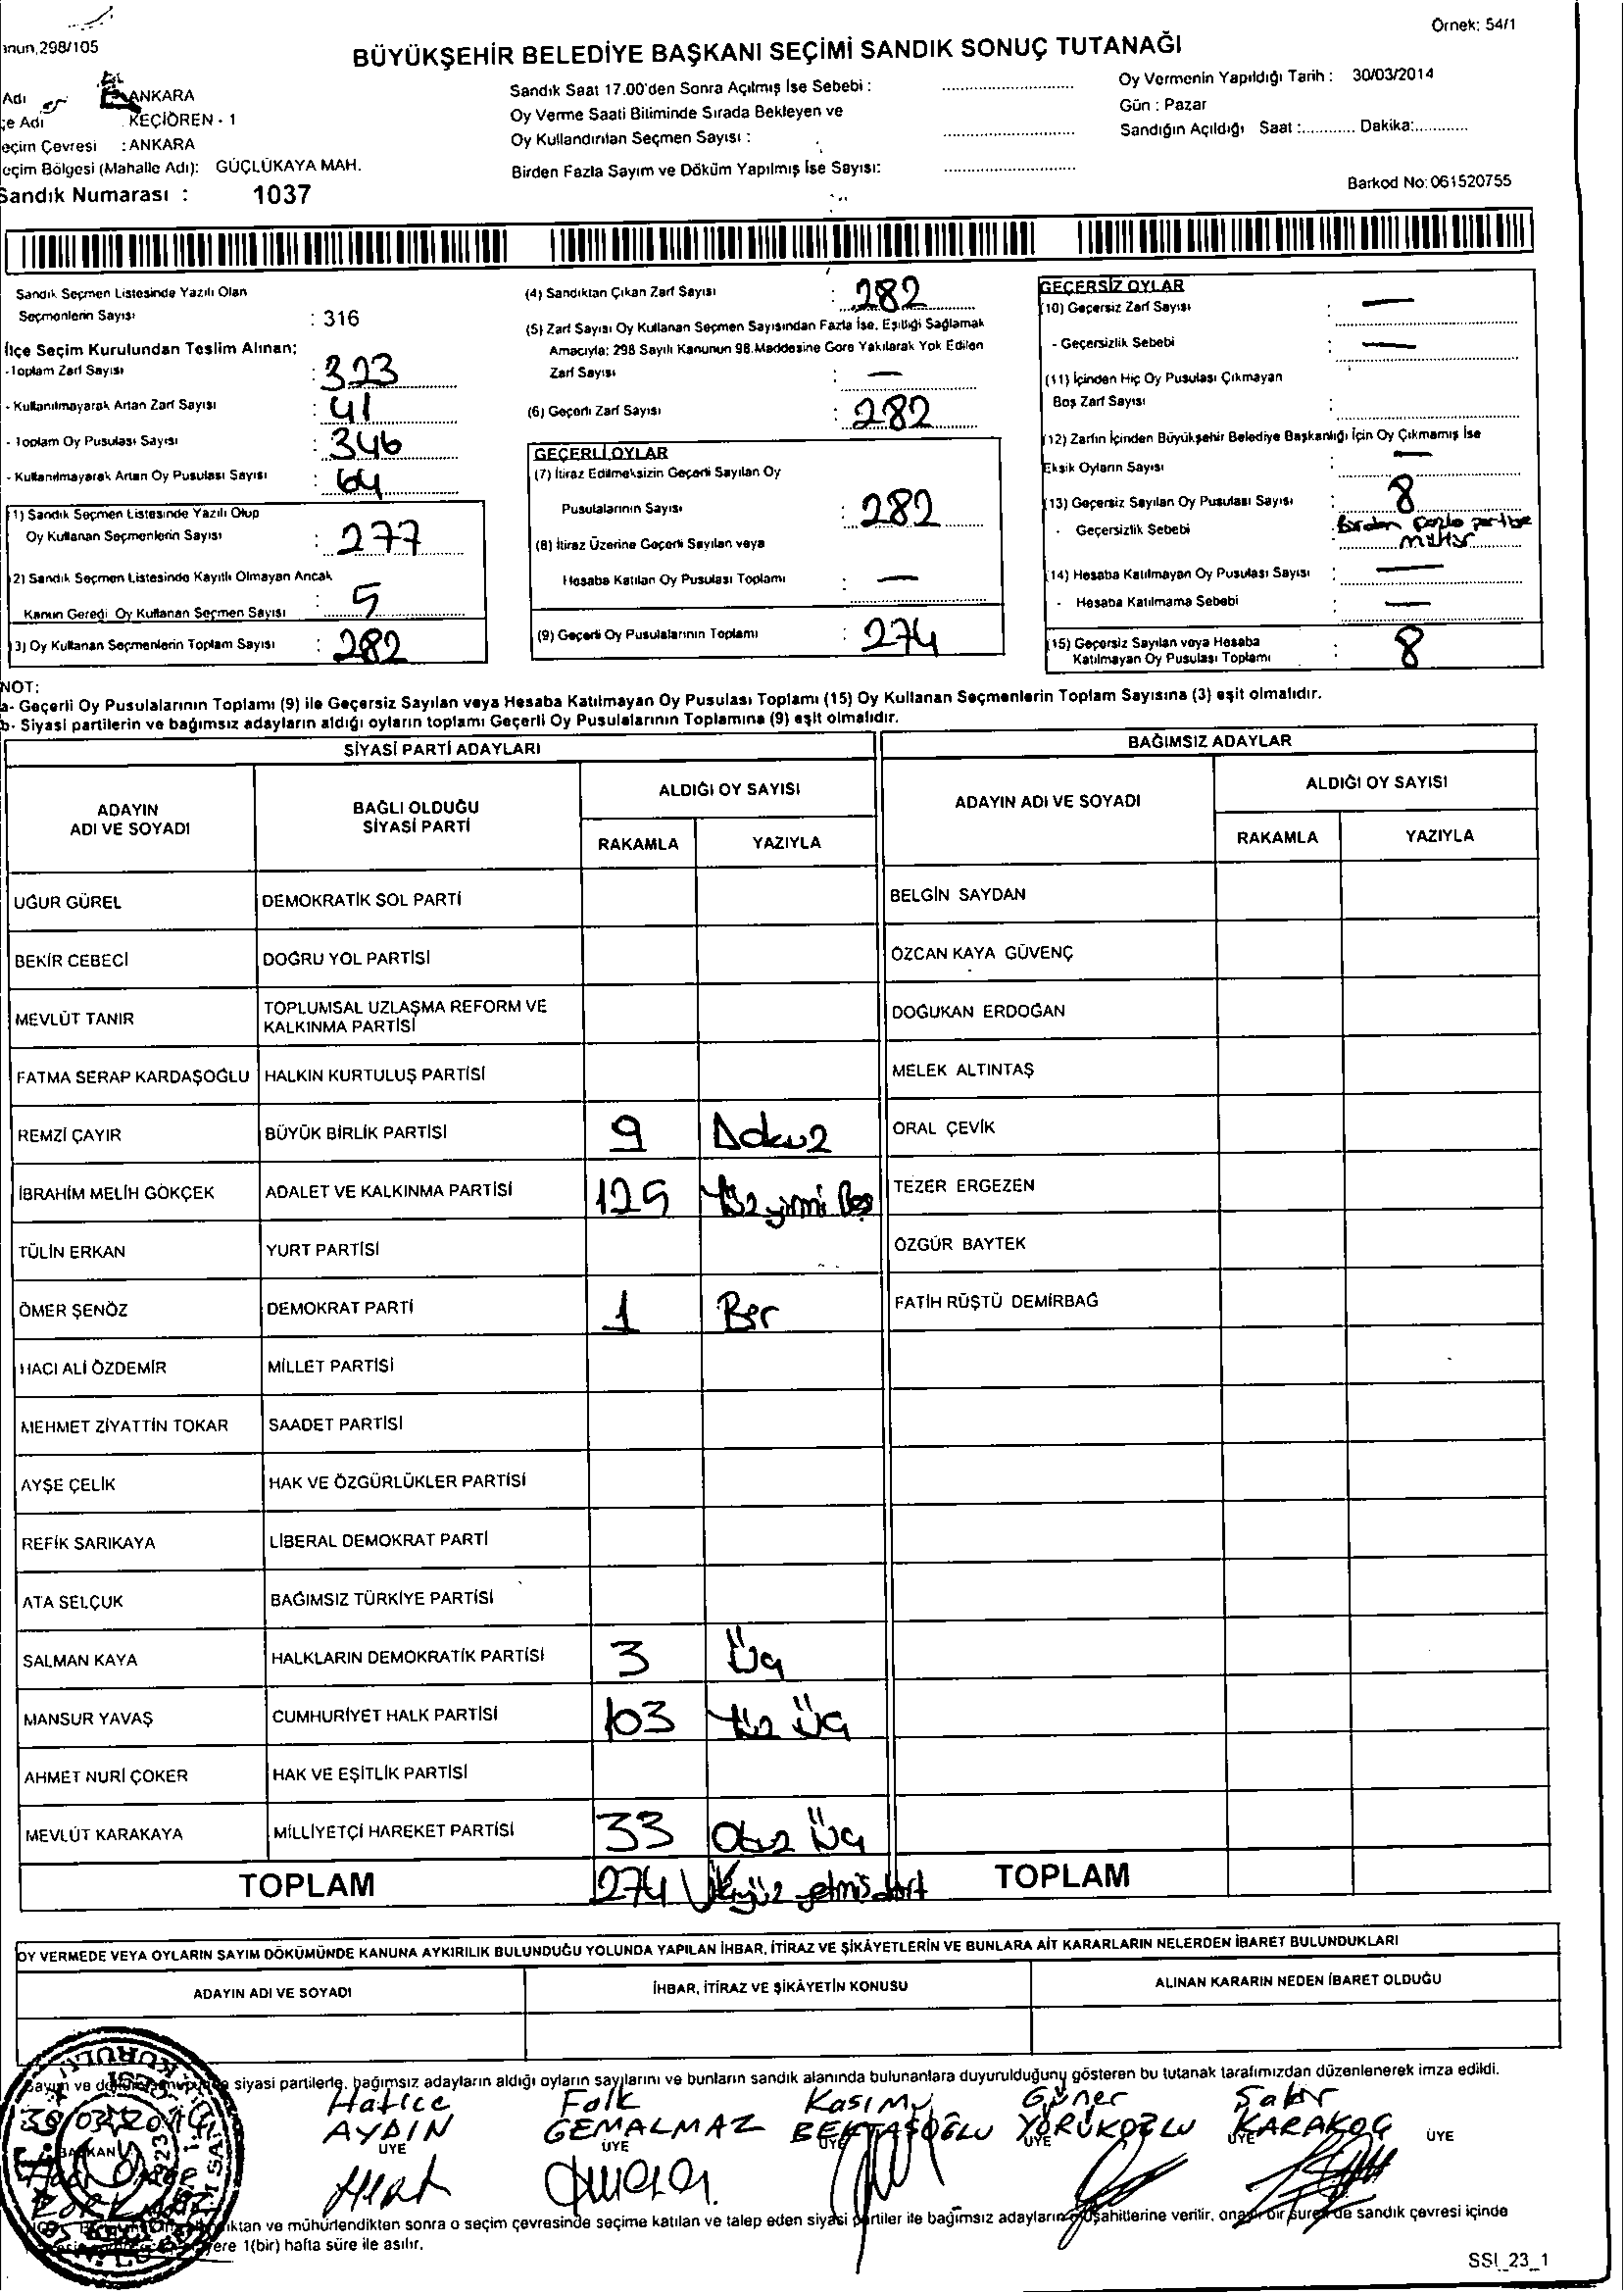 Örnek: 54/1
anun,298/105
BÜYÜKŞEHİR BELEDİYE BAŞKANI SEÇİMİ SANDIK SONUÇ TUTANAĞI
Adı
ANKARA
çe Adı KEÇİÖREN - 1
eçim Çevresi : ANKARA
eçim Bölgesi (Mahalle Adı): GÜÇLÜKAYA MAH.
Sandık Numarası : 1037
Sandık Saat 17.00'den Sonra Açılmış İse Sebebi :
Oy Verme Saati Bitiminde Sırada Bekleyen ve
Oy Kullandırılan Seçmen Sayısı :
Birden Fazla Sayım ve Döküm Yapılmış İse Sayısı:
Oy Vermenin Yapıldığı Tarih : 30/03/2014
Gün : Pazar
Sandığın Açıldığı Saat :........... Dakika:...........
Barkod No: 061520755
Sandık Seçmen Listesinde Yazılı Olan
Seçmenlerin Sayısı : 316
İlçe Seçim Kurulundan Teslim Alınan;
-Toplam Zarf Sayısı : 323
- Kullanılmayarak Artan Zarf Sayısı : 41
- Toplam Oy Pusulası Sayısı : 346
- Kullanılmayarak Artan Oy Pusulası Sayısı : 64
(1) Sandık Seçmen Listesinde Yazılı Olup
Oy Kullanan Seçmenlerin Sayısı : 277
(2) Sandık Seçmen Listesinde Kayıtlı Olmayan Ancak
Kanun Gereği Oy Kullanan Seçmen Sayısı : 5
(3) Oy Kullanan Seçmenlerin Toplam Sayısı : 282
(4) Sandıktan Çıkan Zarf Sayısı : 282
(5) Zarf Sayısı Oy Kullanan Seçmen Sayısından Fazla İse, Eşitliği Sağlamak
Amacıyla; 298 Sayılı Kanunun 98.Maddesine Göre Yakılarak Yok Edilen
Zarf Sayısı : —
(6) Geçerli Zarf Sayısı : 282
GEÇERLİ OYLAR
(7) İtiraz Edilmeksizin Geçerli Sayılan Oy
Pusulalarının Sayısı : 282
(8) İtiraz Üzerine Geçerli Sayılan veya
Hesaba Katılan Oy Pusulası Toplamı : —
(9) Geçerli Oy Pusulalarının Toplamı : 274
GEÇERSİZ OYLAR
(10) Geçersiz Zarf Sayısı : —
- Geçersizlik Sebebi : —
(11) İçinden Hiç Oy Pusulası Çıkmayan
Boş Zarf Sayısı :
(12) Zarfın İçinden Büyükşehir Belediye Başkanlığı İçin Oy Çıkmamış İse
Eksik Oyların Sayısı —
(13) Geçersiz Sayılan Oy Pusulası Sayısı : 8
- Geçersizlik Sebebi : Birden fazla partiye
mühür
(14) Hesaba Katılmayan Oy Pusulası Sayısı : —
- Hesaba Katılmama Sebebi : —
(15) Geçersiz Sayılan veya Hesaba
Katılmayan Oy Pusulası Toplamı : 8
NOT:
a- Geçerli Oy Pusulalarının Toplamı (9) ile Geçersiz Sayılan veya Hesaba Katılmayan Oy Pusulası Toplamı (15) Oy Kullanan Seçmenlerin Toplam Sayısına (3) eşit olmalıdır.
b- Siyasi partilerin ve bağımsız adayların aldığı oyların toplamı Geçerli Oy Pusulalarının Toplamına (9) eşit olmalıdır.
SİYASİ PARTİ ADAYLARI
BAĞIMSIZ ADAYLAR
ADAYIN
ADI VE SOYADI
BAĞLI OLDUĞU
SİYASİ PARTİ
ALDIĞI OY SAYISI
RAKAMLA YAZIYLA
ADAYIN ADI VE SOYADI
ALDIĞI OY SAYISI
RAKAMLA YAZIYLA
UĞUR GÜREL DEMOKRATİK SOL PARTİ BELGİN SAYDAN
BEKİR CEBECİ DOĞRU YOL PARTİSİ ÖZCAN KAYA GÜVENÇ
MEVLÜT TANIR TOPLUMSAL UZLAŞMA REFORM VE
KALKINMA PARTİSİ DOĞUKAN ERDOĞAN
FATMA SERAP KARDAŞOĞLU HALKIN KURTULUŞ PARTİSİ MELEK ALTINTAŞ
REMZİ ÇAYIR BÜYÜK BİRLİK PARTİSİ 9 Dokuz ORAL ÇEVİK
İBRAHİM MELİH GÖKÇEK ADALET VE KALKINMA PARTİSİ 125 Yüz yirmi Beş TEZER ERGEZEN
TÜLİN ERKAN YURT PARTİSİ ÖZGÜR BAYTEK
ÖMER ŞENÖZ DEMOKRAT PARTİ 1 Bir FATİH RÜŞTÜ DEMİRBAĞ
HACI ALİ ÖZDEMİR MİLLET PARTİSİ
MEHMET ZİYATTİN TOKAR SAADET PARTİSİ
AYŞE ÇELİK HAK VE ÖZGÜRLÜKLER PARTİSİ
REFİK SARIKAYA LİBERAL DEMOKRAT PARTİ
ATA SELÇUK BAĞIMSIZ TÜRKİYE PARTİSİ
SALMAN KAYA HALKLARIN DEMOKRATİK PARTİSİ 3 Üç
MANSUR YAVAŞ CUMHURİYET HALK PARTİSİ 103 Yüz Üç
AHMET NURİ ÇOKER HAK VE EŞİTLİK PARTİSİ
MEVLÜT KARAKAYA MİLLİYETÇİ HAREKET PARTİSİ 33 Otuz Üç
TOPLAM 274 İkiyüz yetmiş dört TOPLAM
OY VERMEDE VEYA OYLARIN SAYIM DÖKÜMÜNDE KANUNA AYKIRILIK BULUNDUĞU YOLUNDA YAPILAN İHBAR, İTİRAZ VE ŞİKÂYETLERİN VE BUNLARA AİT KARARLARIN NELERDEN İBARET BULUNDUKLARI
ADAYIN ADI VE SOYADI İHBAR, İTİRAZ VE ŞİKÂYETİN KONUSU ALINAN KARARIN NEDEN İBARET OLDUĞU
Sayım ve siyasi partilerle, bağımsız adayların aldığı oyların sayılarını ve bunların sandık alanında bulunanlara duyurulduğunu gösteren bu tutanak tarafımızdan düzenlenerek imza edildi.
30/03/2014 Hatice Faik Kasım Güner Sabır
AYDIN GEMALMAZ BEKTAŞOĞLU YÖRÜKOĞLU KARAKOÇ
BAŞKAN ÜYE ÜYE ÜYE ÜYE ÜYE ÜYE
KORKMAZ
ıktan ve mühürlendikten sonra o seçim çevresinde seçime katılan ve talep eden siyasi partiler ile bağımsız adayların müşahitlerine verilir, onaylı bir sureti de sandık çevresi içinde
yere 1(bir) hafta süre ile asılır.
SSI_23_1